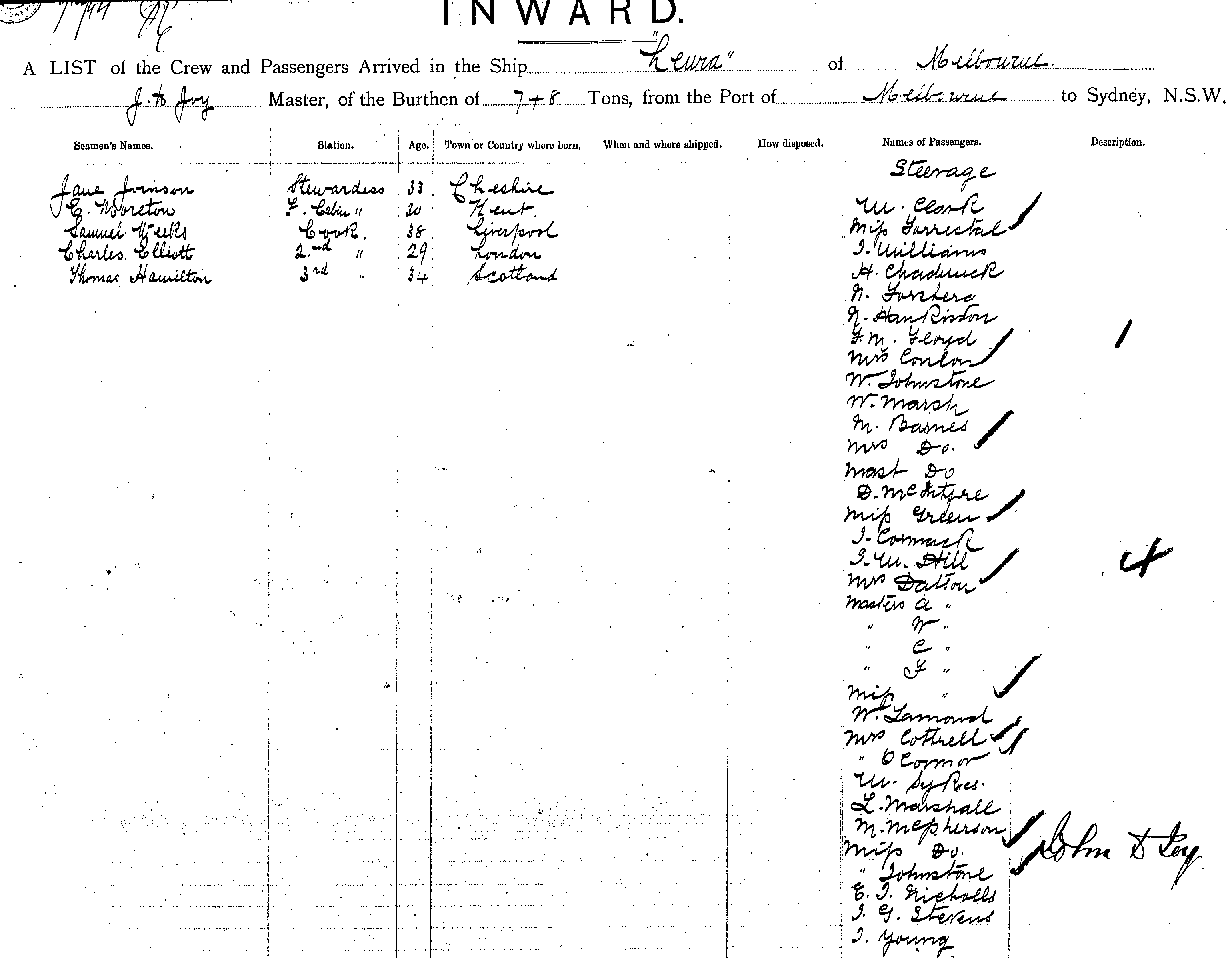 INWARD.
A LIST of the Crew and Passengers Arrived in the Ship "Leura" of Melbourne.
J. D Joy Master, of the Burthen of 7+8 Tons, from the Port of Melbourne to Sydney, N.S.W.
Seamen's Names. Station. Age. Town or Country where born. When and where shipped. How disposed. Names of Passengers. Description.
Steerage
Jane Johnson Stewardess 33 Cheshire
E. Moreton F. Cabin " 20 Kent.
Samuel Weeks Cook. 38 Liverpool
Charles Elliott 2nd " 29 London
Thomas Hamilton 3rd " 34 Scotland
W. Clark
Miss Forrestal
J. Williams
H. Chadwick
N. Forsberg
N. Hankinson
F. M. Floyd
Mrs Conlon
W. Johnstone
W. Marsh
M. Barnes
Mrs Do.
Mast Do
D. McIntyre
Miss Green
J. Cormack
J. W. Hill
Mrs Dalton
Masters A "
" W "
" C "
" F "
Miss "
W. Lamond
Mrs Cottrell
" O'Connor
W. Sykes.
L. Marshall
M. McPherson
Miss Do.
" Johnstone
E. J. Nicholls
J. G. Stevens
J. Young
1
4
John D Joy